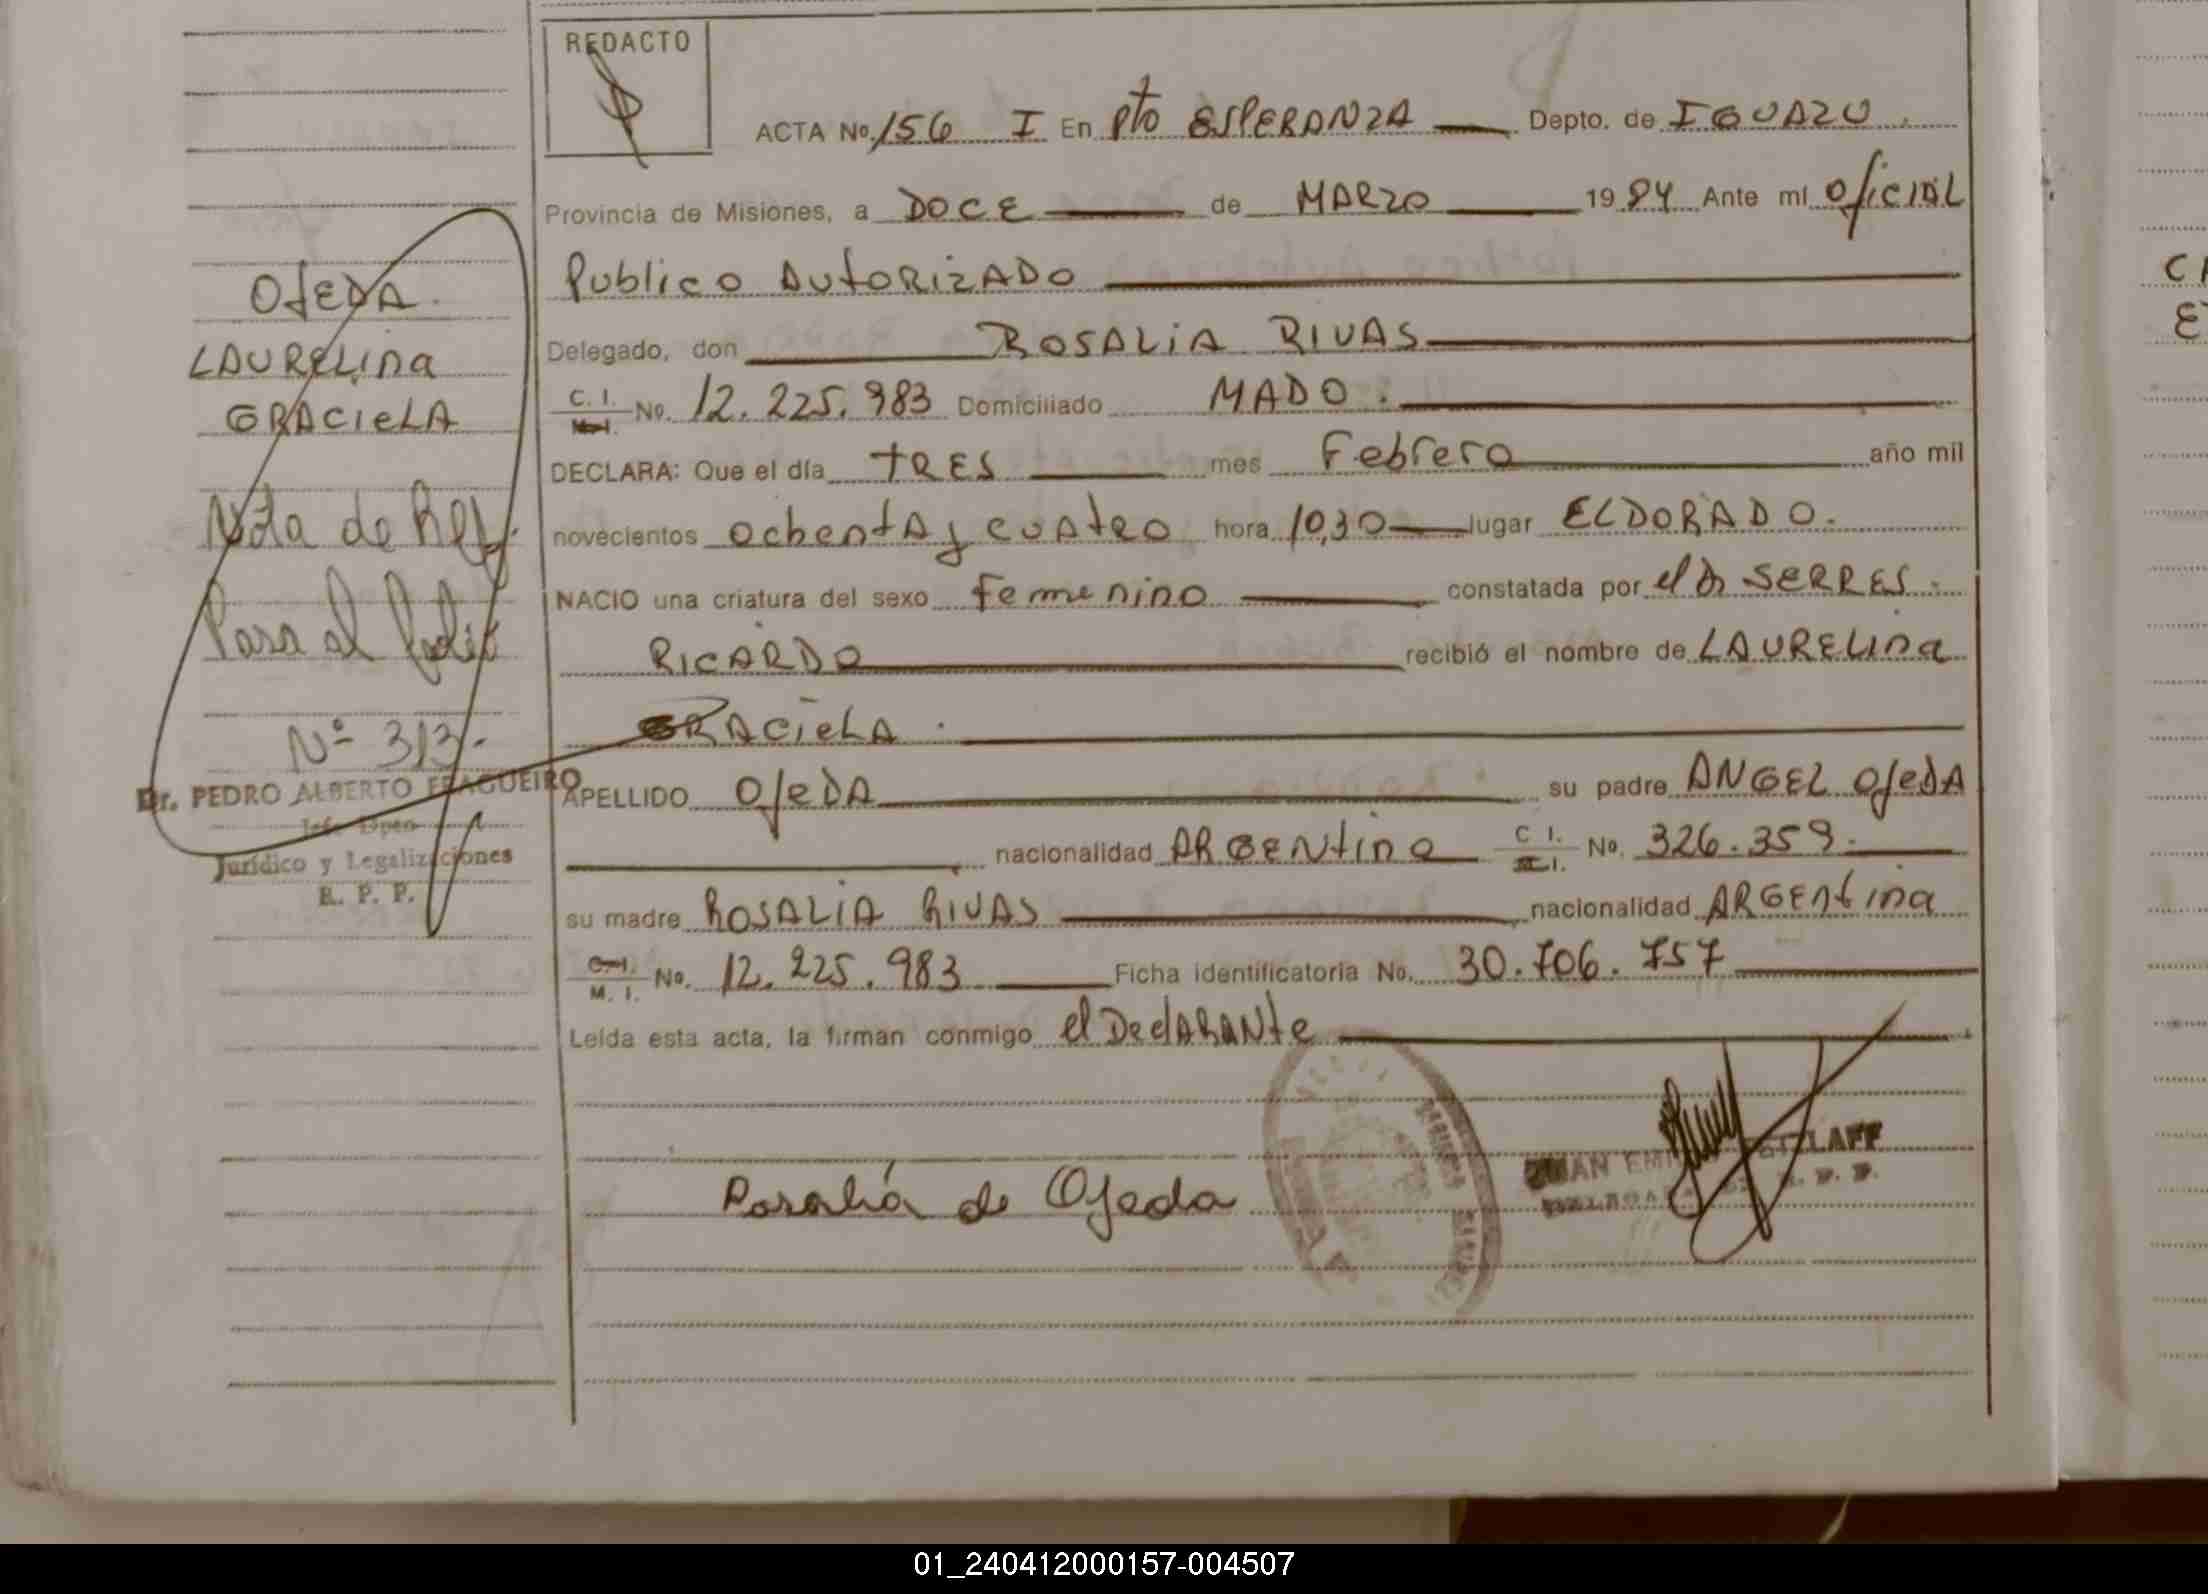 REDACTO
ACTA No. 156 I En Pto ESPERANZA Depto. de IGUAZU.
Provincia de Misiones, a DOCE de MARZO 1984 Ante mí Oficial
Publico AutoRizADO
Delegado, don ROSALIA RIVAS
C. I. M. I. No. 12.225.983 Domiciliado MADO.
DECLARA: Que el día tRES mes Febrero año mil
novecientos ochentA y cuAtRO hora 10,30 lugar ELDORADO.
NACIO una criatura del sexo femenino constatada por el Dr SERRES.
RICARDO recibió el nombre de LAURELina
GRACieLA.
APELLIDO OJeDA su padre ANGEL OJeDA
nacionalidad ARGENtino C. I. M. I. No. 326.359.
su madre ROSALIA RIVAS nacionalidad ARGENtina
C. I. M. I. No. 12.225.983 Ficha identificatoria No. 30.706.757
Leída esta acta, la firman conmigo el DeclARANte
Rosalía de Ojeda
OJEDA.
LAURELina
GRACieLA
Nota de Ref.
Pasa al folio
Nº 313.-
Dr. PEDRO ALBERTO FRAGUEIRO
Jefe Dpto
Jurídico y Legalizaciones
R. P. P.
01_240412000157-004507